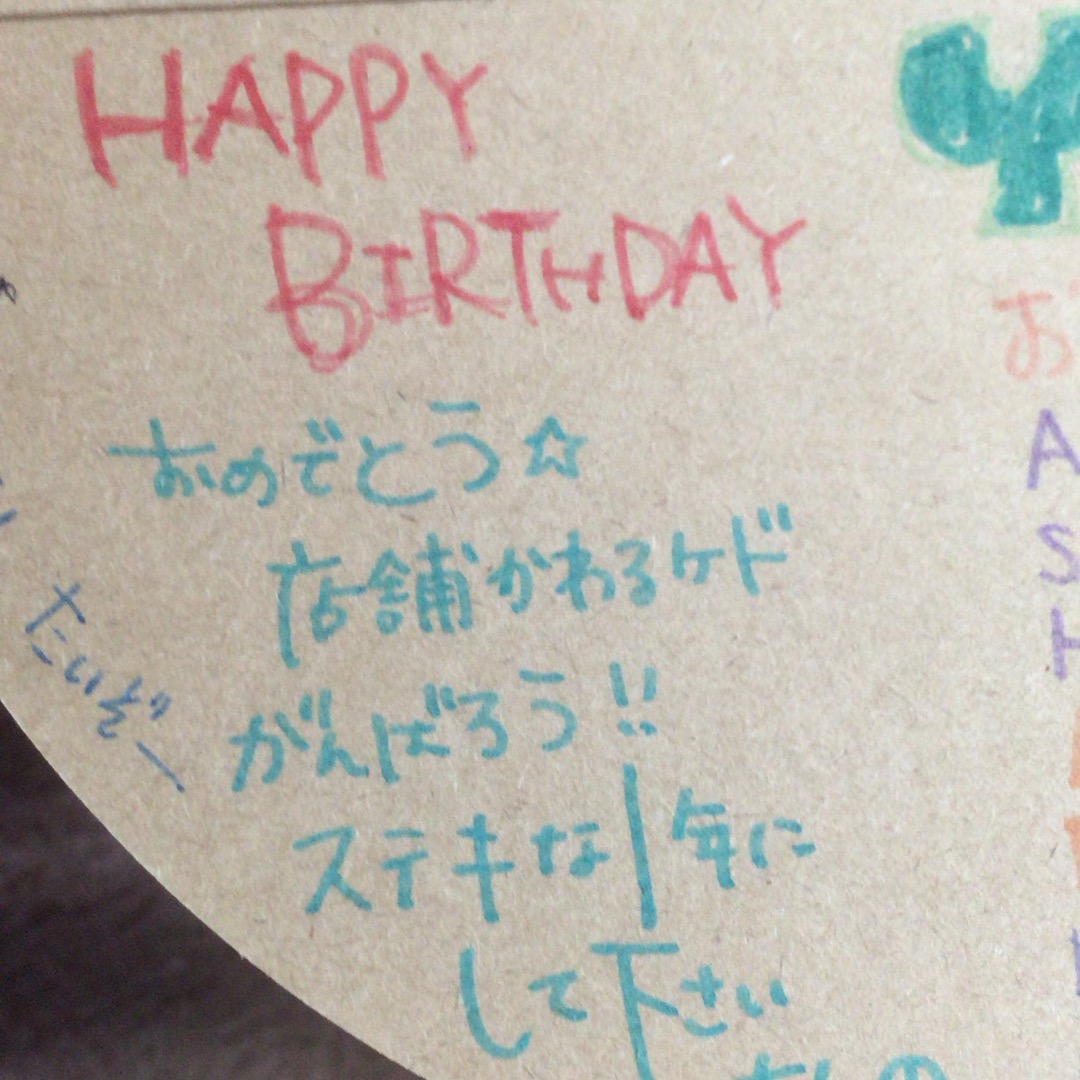 HAPPY
BIRTHDAY
おめでとう☆
店舗かわるケド
がんばろう!!
ステキな1年に
して下さい
たいぞー
お
A
S
H